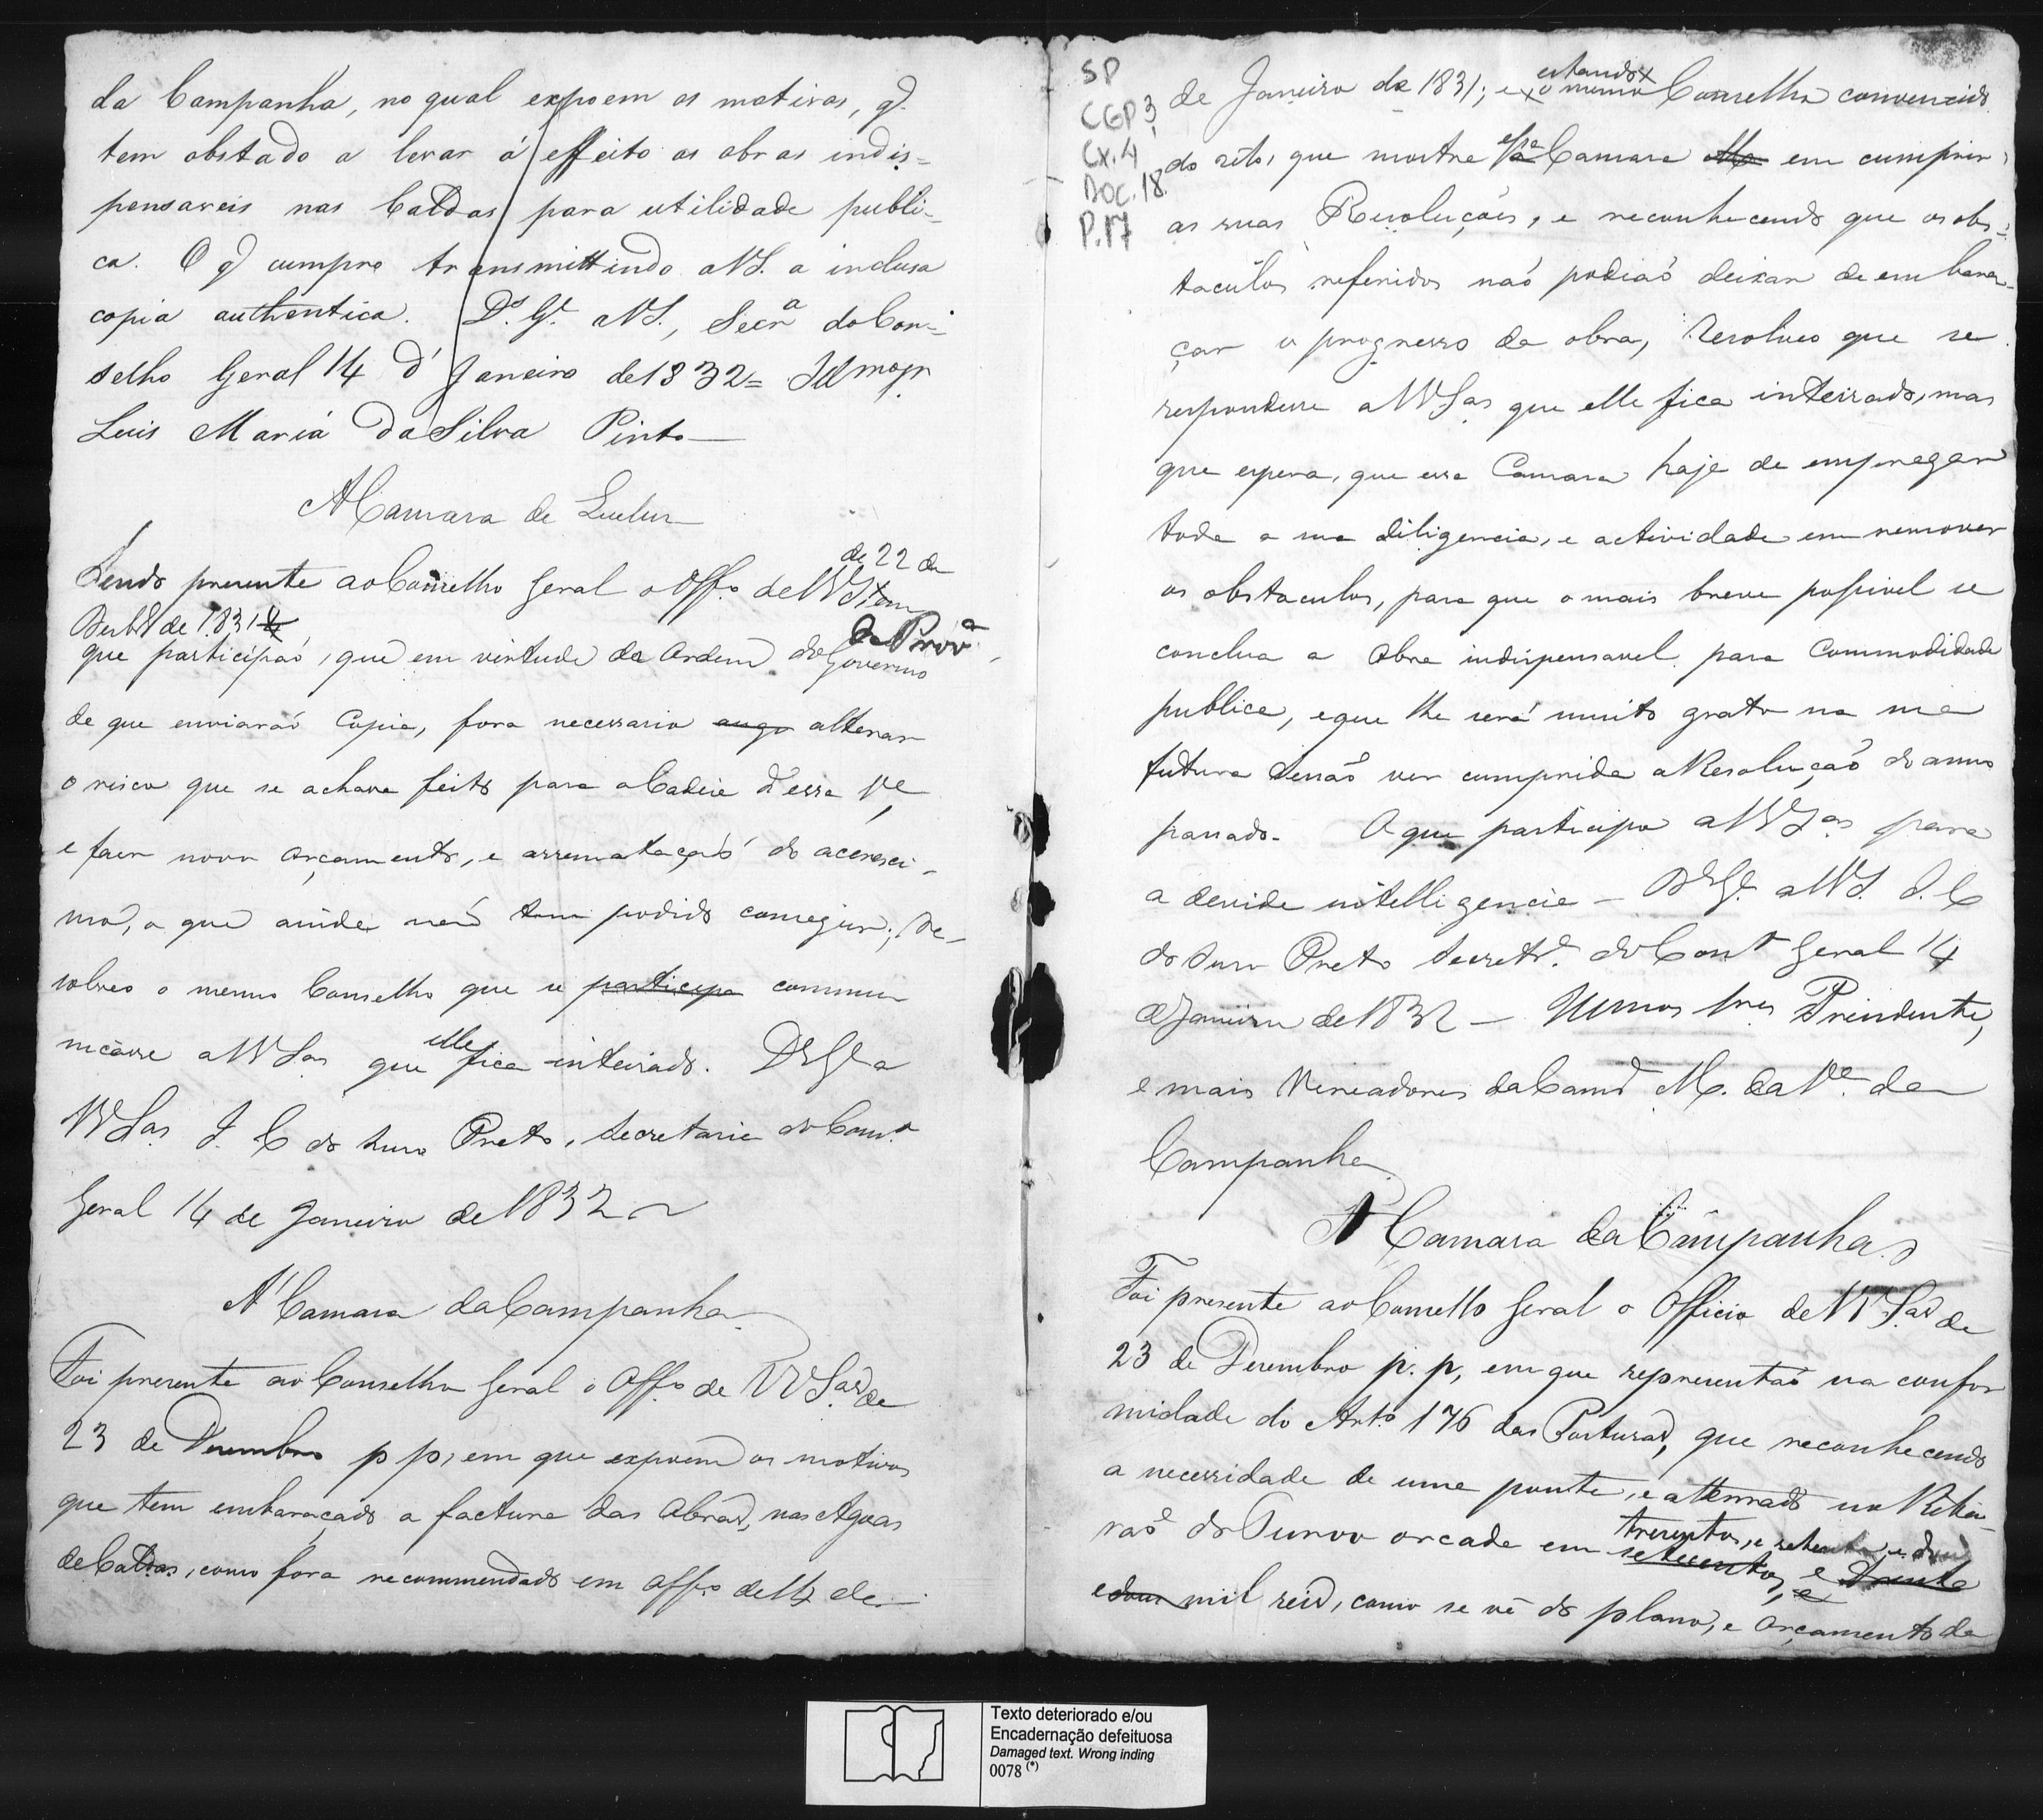 da Campanha, no qual expoem os motivos, q.
tem obstado a levar á effeito as obras indis=
pensaveis nas Caldas para utilidade publi-
ca. O q cumpre transmittindo a VS. a inclusa
copia authentica. Ds. Ge. a VS., Secra do Con-
selho Geral 14 d' Janeiro de 1832=
Luis Maria da Silva Pinto—
A Camara de
Sendo presente ao Conselho Geral o Offo. de VV S em
de 22 de
Desbro de 1831
que participaó, que em virtude da Ordem do Governo
da Prova
de que enviaraó Copia, fora necessario alterar
o risco que se achava feito para a Cadeia d'essa Va
e fazer novo orçamento, e arremataçaó do accresci-
mo, o que ainda naó tem podido conseguir; Re-
solveo o mesmo Conselho que se participa commu
nicasse a VV Sas que elle fica inteirado. Ds Ge a
VV Sas I. C do Ouro Preto, Secretaria do Conso.
Geral 14 de Janeiro de 1832
A' Camara da Campanha
Foi presente ao Conselho Geral o Offo de VV Sas de
23 de Dezembro p p, em que expoem os motivos
que tem embaraçado a factura das Obras, nas Agoas
de Caldas, como fora recommendado em Offo de 14 de
SP
CGP3
Cx.4
DOC.18
P.17
de Janeiro de 1831; e estando o mesmo Conselho convencido
do zelo, que mostra essa Camara em cumprir
as suas Resoluçoẽs, e reconhecendo que os obs=
taculos referidos naó podiaó deixar de embara-
çar o progresso da obra, Resolveo que se
respondesse a VV Sas que elle fica inteirado, mas
que espera, que essa Camara haja de empregar
toda a sua diligencia, e actividade em remover
os obstaculos, para que o mais breve possivel se
conclua a Obra indispensavel para Commodidade
publica, e que lhe será muito grato na sua
futura Sessaõ ver cumprida a Resoluçaõ do anno
passado. O que participo a VV Sas para
a devida intelligencia — Ds Ge. a VV S. I. C
do Ouro Preto Secreta. do Conso Geral 14
de Janeiro de 1832 — Senres Presidente,
e mais Vereadores da Camra M. da Va. da
Campanha
A' Camara da Campanha
Foi presente ao Conselho Geral o Officio de VV Sas de
23 de Dezembro p. p, em que representaó na confor
midade do Arto. 176 das Posturas, que reconhecendo
a necessidade de uma ponte, e atterrado no Ribei-
raõ do Turvo orcada em trezentos, e setenta e dous
setecentos, e trinta
e dous mil reis, como se vê do plano, e Orçamento da
Texto deteriorado e/ou
Encadernação defeituosa
Damaged text. Wrong inding
0078 (*)